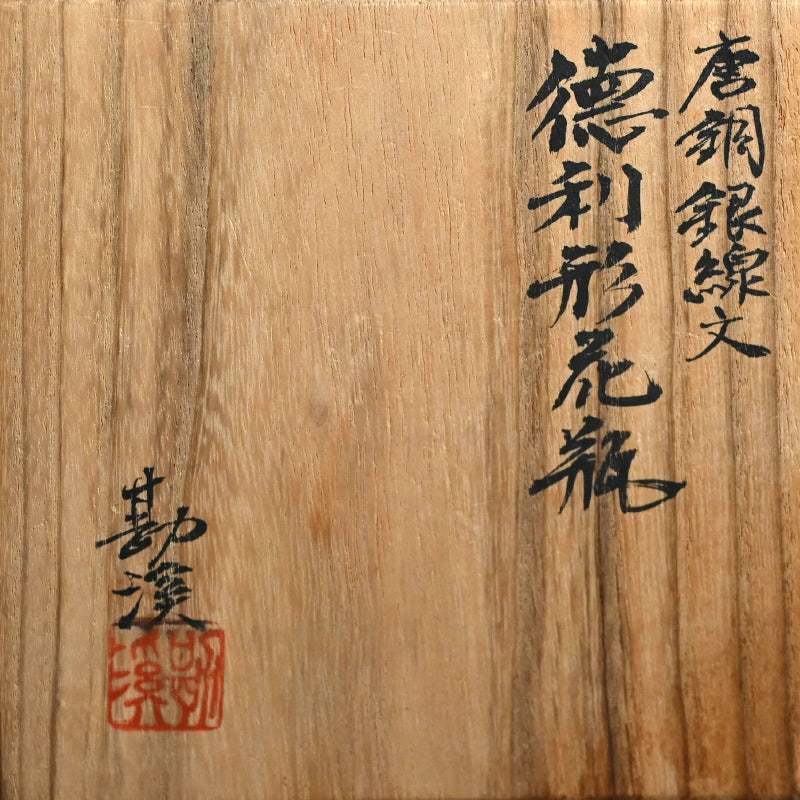 唐銅銀線文
徳利形花瓶
勘渓
勘渓